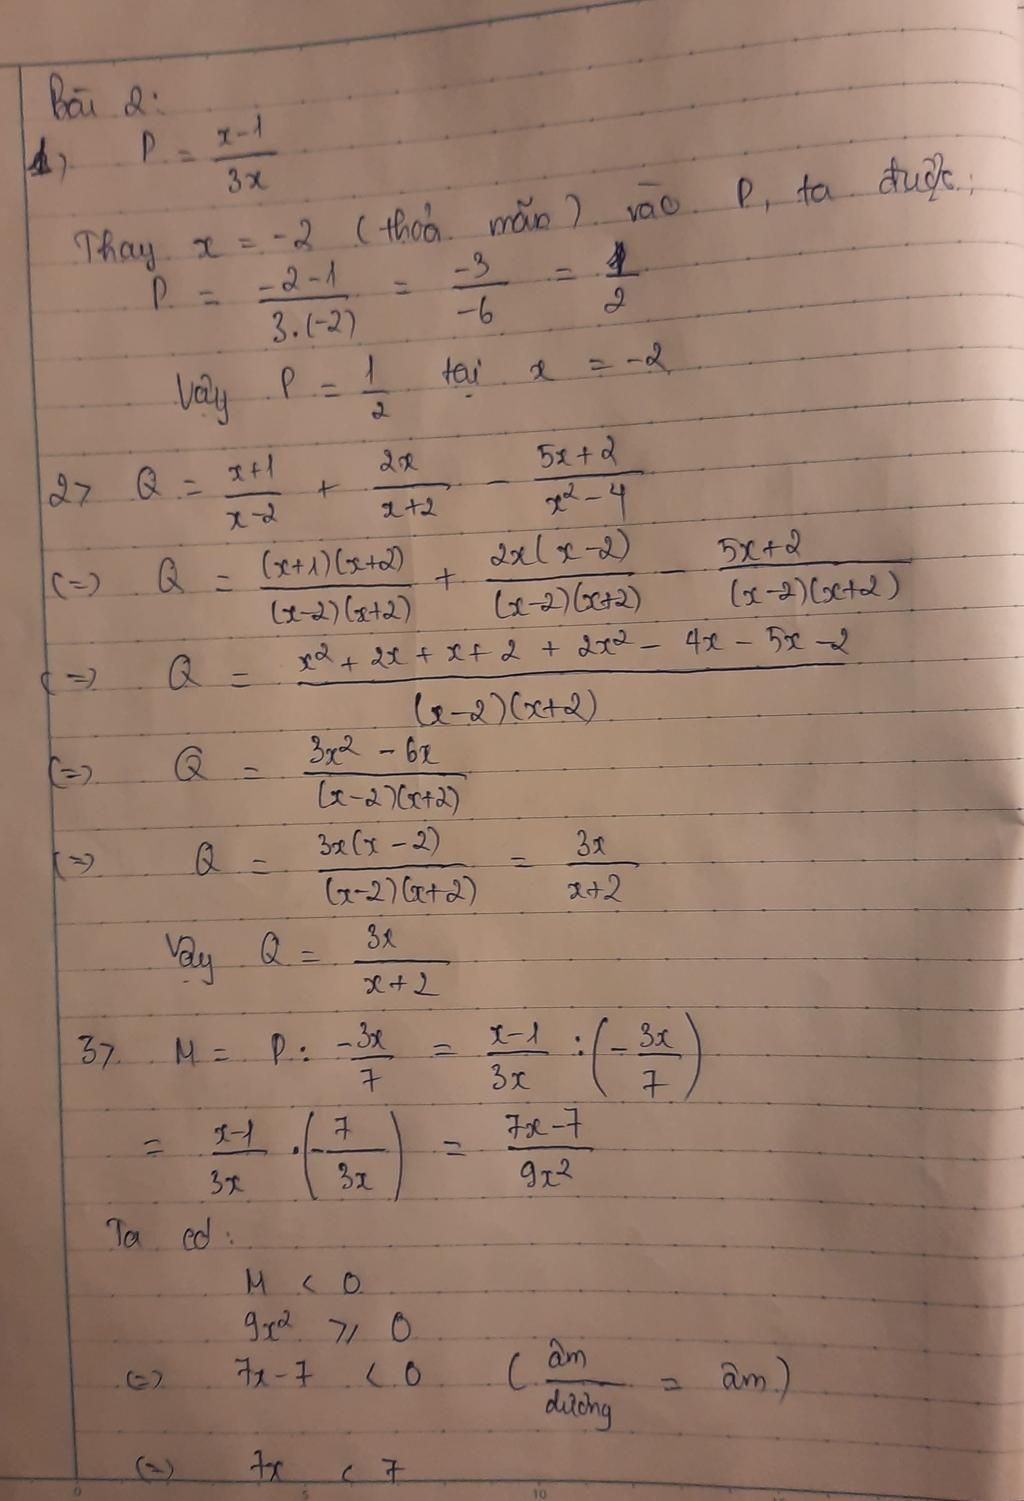 Bài 2:
1> P = (x-1)/(3x)
Thay x = -2 (thoả mãn) vào P, ta được;
P = (-2-1)/(3.(-2)) = (-3)/(-6) = 1/2
Vậy P = 1/2 tại x = -2
2> Q = (x+1)/(x-2) + (2x)/(x+2) - (5x+2)/(x²-4)
(=) Q = ((x+1)(x+2))/((x-2)(x+2)) + (2x(x-2))/((x-2)(x+2)) - (5x+2)/((x-2)(x+2))
(=) Q = (x² + 2x + x + 2 + 2x² - 4x - 5x - 2)/((x-2)(x+2))
(=) Q = (3x² - 6x)/((x-2)(x+2))
(=) Q = (3x(x-2))/((x-2)(x+2)) = (3x)/(x+2)
Vậy Q = (3x)/(x+2)
3> M = P : -(3x)/7 = (x-1)/(3x) : (-(3x)/7)
= (x-1)/(3x) . (-7/(3x)) = (7x-7)/(9x²)
Ta có:
M < 0
9x² ⩾ 0
(=) 7x-7 < 0 (âm/dương = âm)
(=) 7x < 7
0 5 10